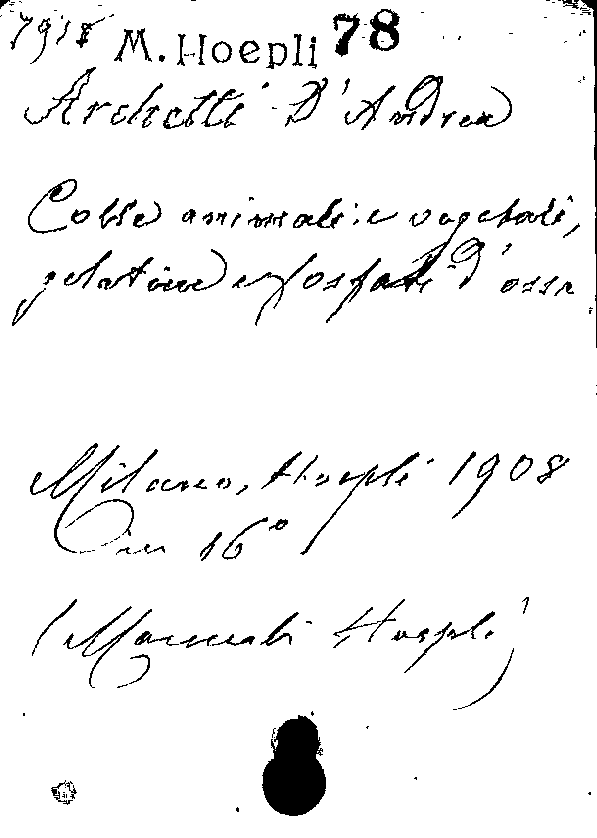 7918 M. Hoepli 78
Archetti D'Andrea
Colle animali e vegetali,
gelatine e fosfati d'ossa
Milano, Hoepli 1908
in 16°
(Manuali Hoepli)